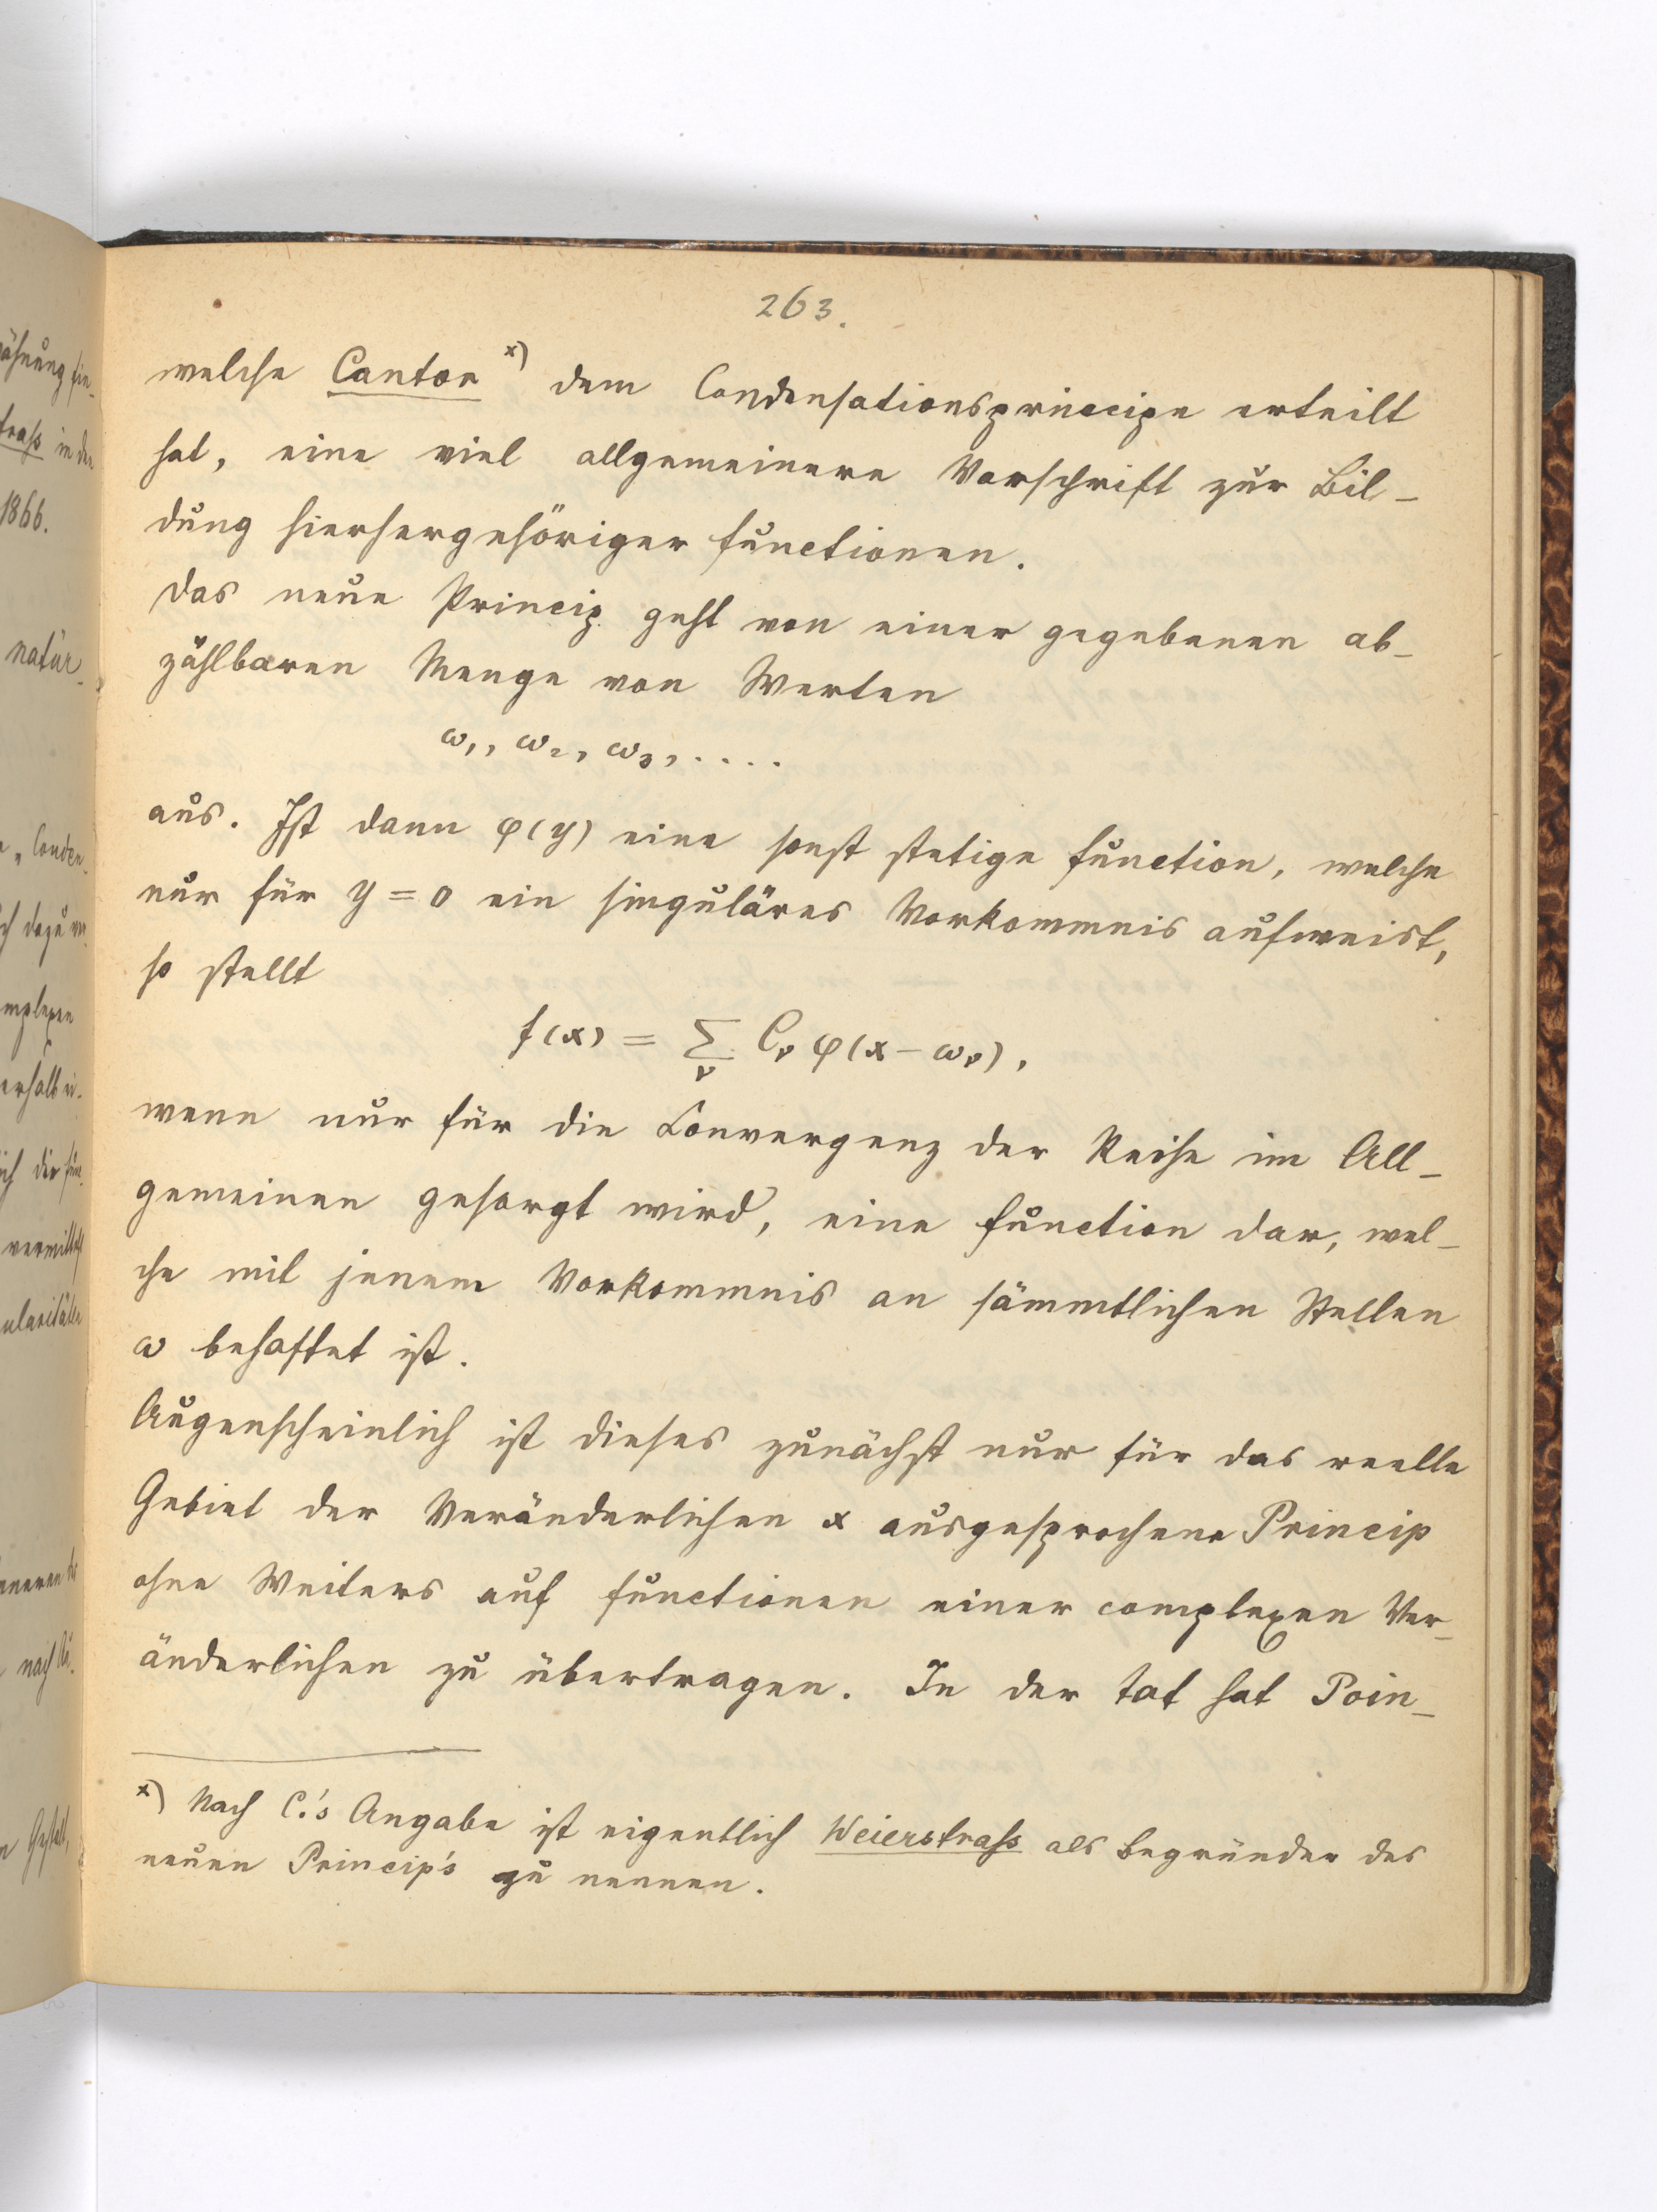 263.
welche Cantor x) dem Condensationsprincipe erteilt
hat, eine viel allgemeinere Vorschrift zur Bil-
dung hierhergehöriger Functionen.
Das neue Princip geht von einer gegebenen ab-
zählbaren Menge von Werten
ω₁, ω₂, ω₃, ....
aus. Ist dann φ(y) eine sonst stetige Function, welche
nur für y = 0 ein singuläres Vorkommnis aufweist,
so stellt
f(x) = Σ_ν C_ν φ(x − ω_ν),
wenn nur für die Convergenz der Reihe im All-
gemeinen gesorgt wird, eine Function dar, wel-
che mit jenem Vorkommnis an sämmtlichen Stellen
ω behaftet ist.
Augenscheinlich ist dieses zunächst nur für das reelle
Gebiet der Veränderlichen x ausgesprochene Princip
ohne Weiters auf Functionen einer complexen Ver-
änderlichen zu übertragen. In der Tat hat Poin-
x) Nach C.'s Angabe ist eigentlich Weierstraß als Begründer des
neuen Princip's zu nennen.
1866.
natür-